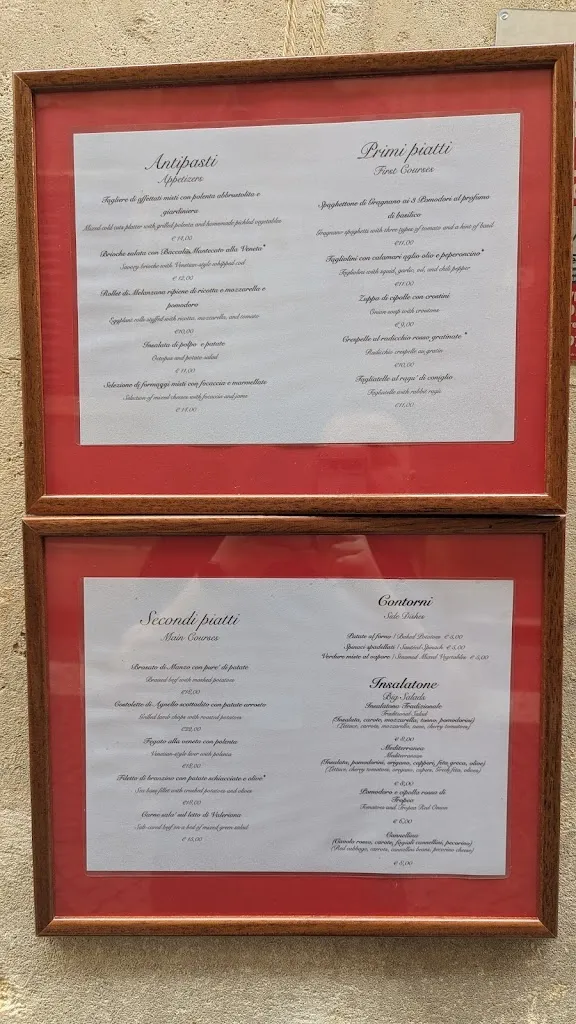 Antipasti
Appetizers
Tagliere di affettati misti con polenta abbrustolita e
giardiniera
Mixed cold cuts platter with grilled polenta and homemade pickled vegetables
€ 14,00
Brioche salata con Baccalà Mantecato alla Veneta*
Savory brioche with Venetian-style whipped cod
€ 12,00
Rollet di Melanzana ripiene di ricotta e mozzarella e
pomodoro
Eggplant rolls stuffed with ricotta, mozzarella, and tomato
€10,00
Insalata di polpo e patate
Octopus and potato salad
€ 11,00
Selezione di formaggi misti con focaccia e marmellate
Selection of mixed cheeses with focaccia and jams
€ 14,00
Primi piatti
First Courses
Spaghettone di Gragnano ai 3 Pomodori al profumo
di basilico
Gragnano spaghetti with three types of tomato and a hint of basil
€11,00
Tagliolini con calamari aglio olio e peperoncino*
Tagliolini with squid, garlic, oil, and chili pepper
€11,00
Zuppa di cipolle con crostini
Onion soup with croutons
€ 9,00
Crespelle al radicchio rosso gratinate*
Radicchio crespelle au gratin
€10,00
Tagliatelle al ragu' di coniglio
Tagliatelle with rabbit ragù
€11,00
Secondi piatti
Main Courses
Brasato di Manzo con pure' di patate
Braised beef with mashed potatoes
€18,00
Costolette di Agnello scottadito con patate arrosto
Grilled lamb chops with roasted potatoes
€22,00
Fegato alla veneta con polenta
Venetian-style liver with polenta
€18,00
Filetto di branzino con patate schiacciate e olive*
Sea bass fillet with crushed potatoes and olives
€18,00
Carne sala' sul letto di Valeriana
Salt-cured beef on a bed of mixed green salad
€ 15,00
Contorni
Side Dishes
Patate al forno | Baked Potatoes € 5,00
Spinaci spadellati | Sauteed Spinach € 5,00
Verdure miste al vapore | Steamed Mixed Vegetables € 5,00
Insalatone
Big Salads
Insalatona Tradizionale
Traditional Salad
(Insalata, carote, mozzarella, tonno, pomodorini)
(Lettuce, carrots, mozzarella, tuna, cherry tomatoes)
€ 8,00
Mediterranea
Mediterranean
(Insalata, pomodorini, origano, capperi, feta greca, olive)
(Lettuce, cherry tomatoes, oregano, capers, Greek feta, olives)
€ 8,00
Pomodoro e cipolla rossa di
Tropea
Tomatoes and Tropea Red Onion
€ 6,00
Cannellino
(Cavolo rosso, carote, fagioli cannellini, pecorino)
(Red cabbage, carrots, cannellini beans, pecorino cheese)
€ 8,00